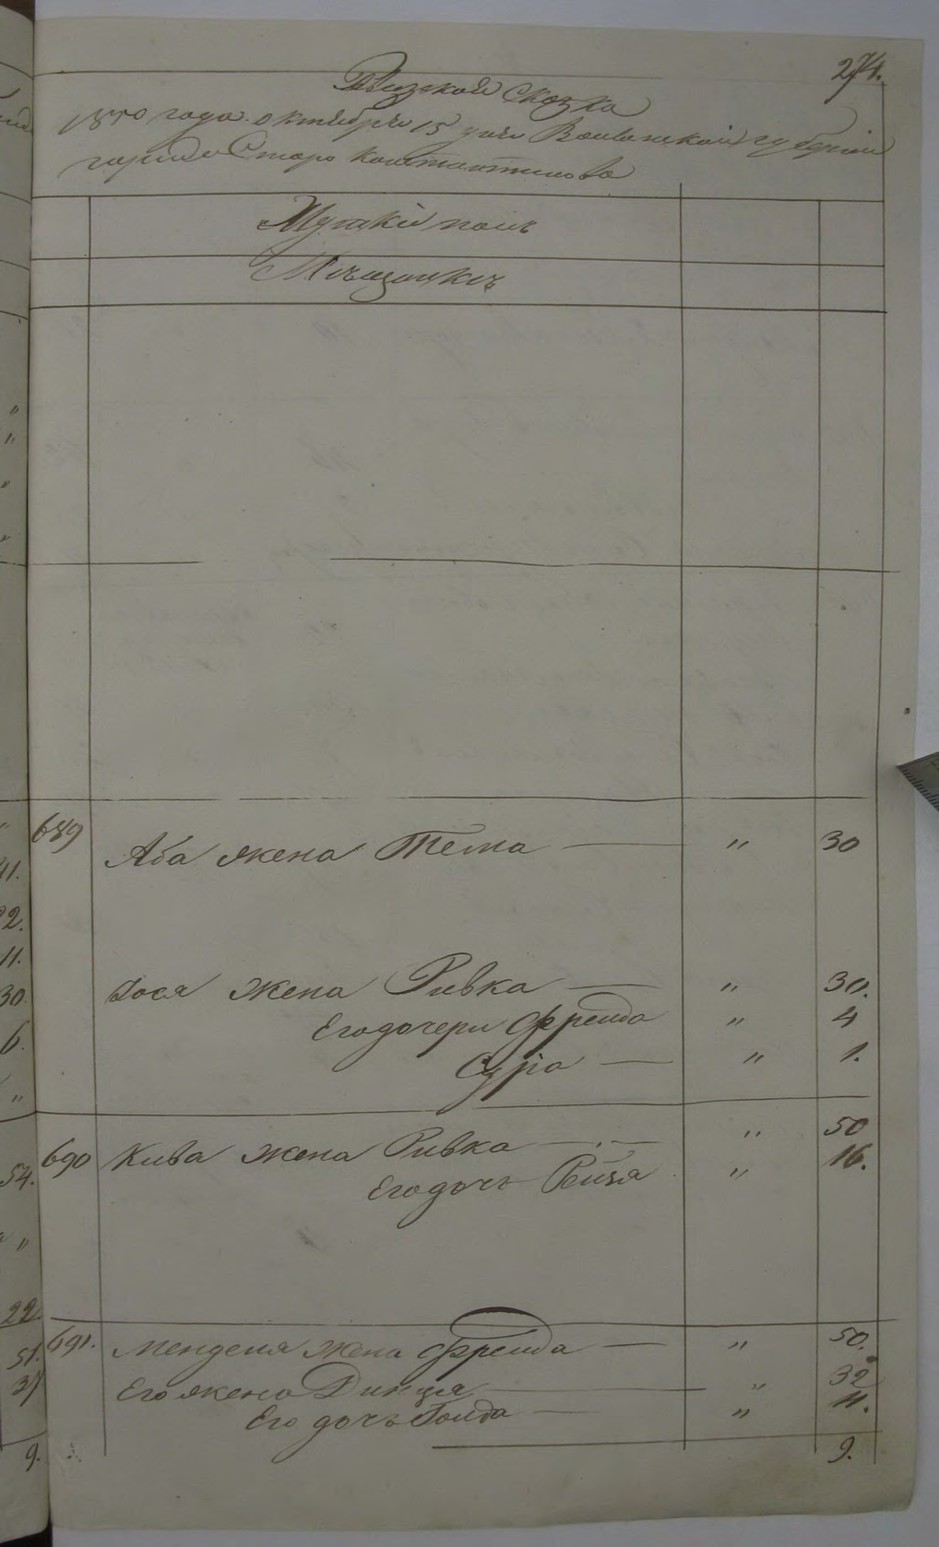 274.
Ревизской сказка
1850 года октября 15 дня Волынской губернии
города Старо Константинова
Мещанкъ
689 Аба жена Тема — " 30
Іося жена Ривка — " 30.
Его дочери Фрейда " 4
Сура — " 1.
690 Кива жена Ривка — " 50
Его дочь Рейзя " 16.
691. Менделя жена Фрейда — " 50.
Его жена Динця — " 32
Его дочь Голда — " 11.
9.
11.
22.
11.
30.
6.
"
54.
"
22.
51.
37
9.